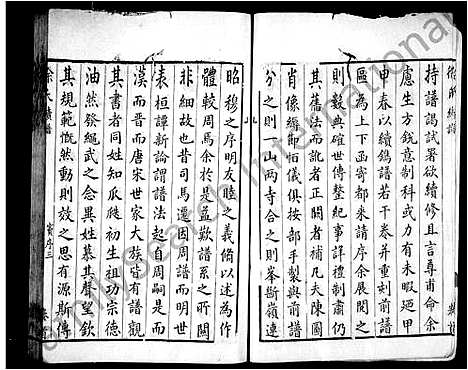 徐氏续譜
持譜謁試署欲續修且言尊甫命余
慮生方銳意制科或力有未暇迺甲
甲春以續鐫譜若干卷并重刻前譜
區為上下函寄都来請序余展閱之
則數典確世傳整紀事詳禮制肅仍
其舊法而訛者正闕者補凡夫陳圖
肖像經節佰儀俱按部手製與前譜
分之則一山两寺合之則峯斷嶺連
昭穆之序明友睦之義脩以述為作
體較周馬余於是益歎譜系之所關
非細故也昔司馬遷因周譜而明世
表桓譚新論謂譜法起自周嗣是而
漢而晉而唐宋世家大族皆有譜觀
其書者同姓知瓜瓞初生祖功宗德
油然發繩武之念異姓慕其聲望欽
其規範慨然動則效之思有源斯傳
徐氏續譜
賓序三